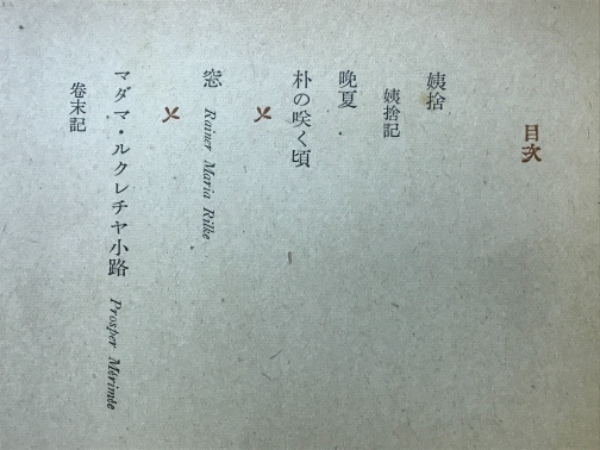 目次
姨捨
姨捨記
晩夏
朴の咲く頃
窓 Rainer Maria Rilke
マダマ・ルクレチヤ小路 Prosper Mérimée
巻末記